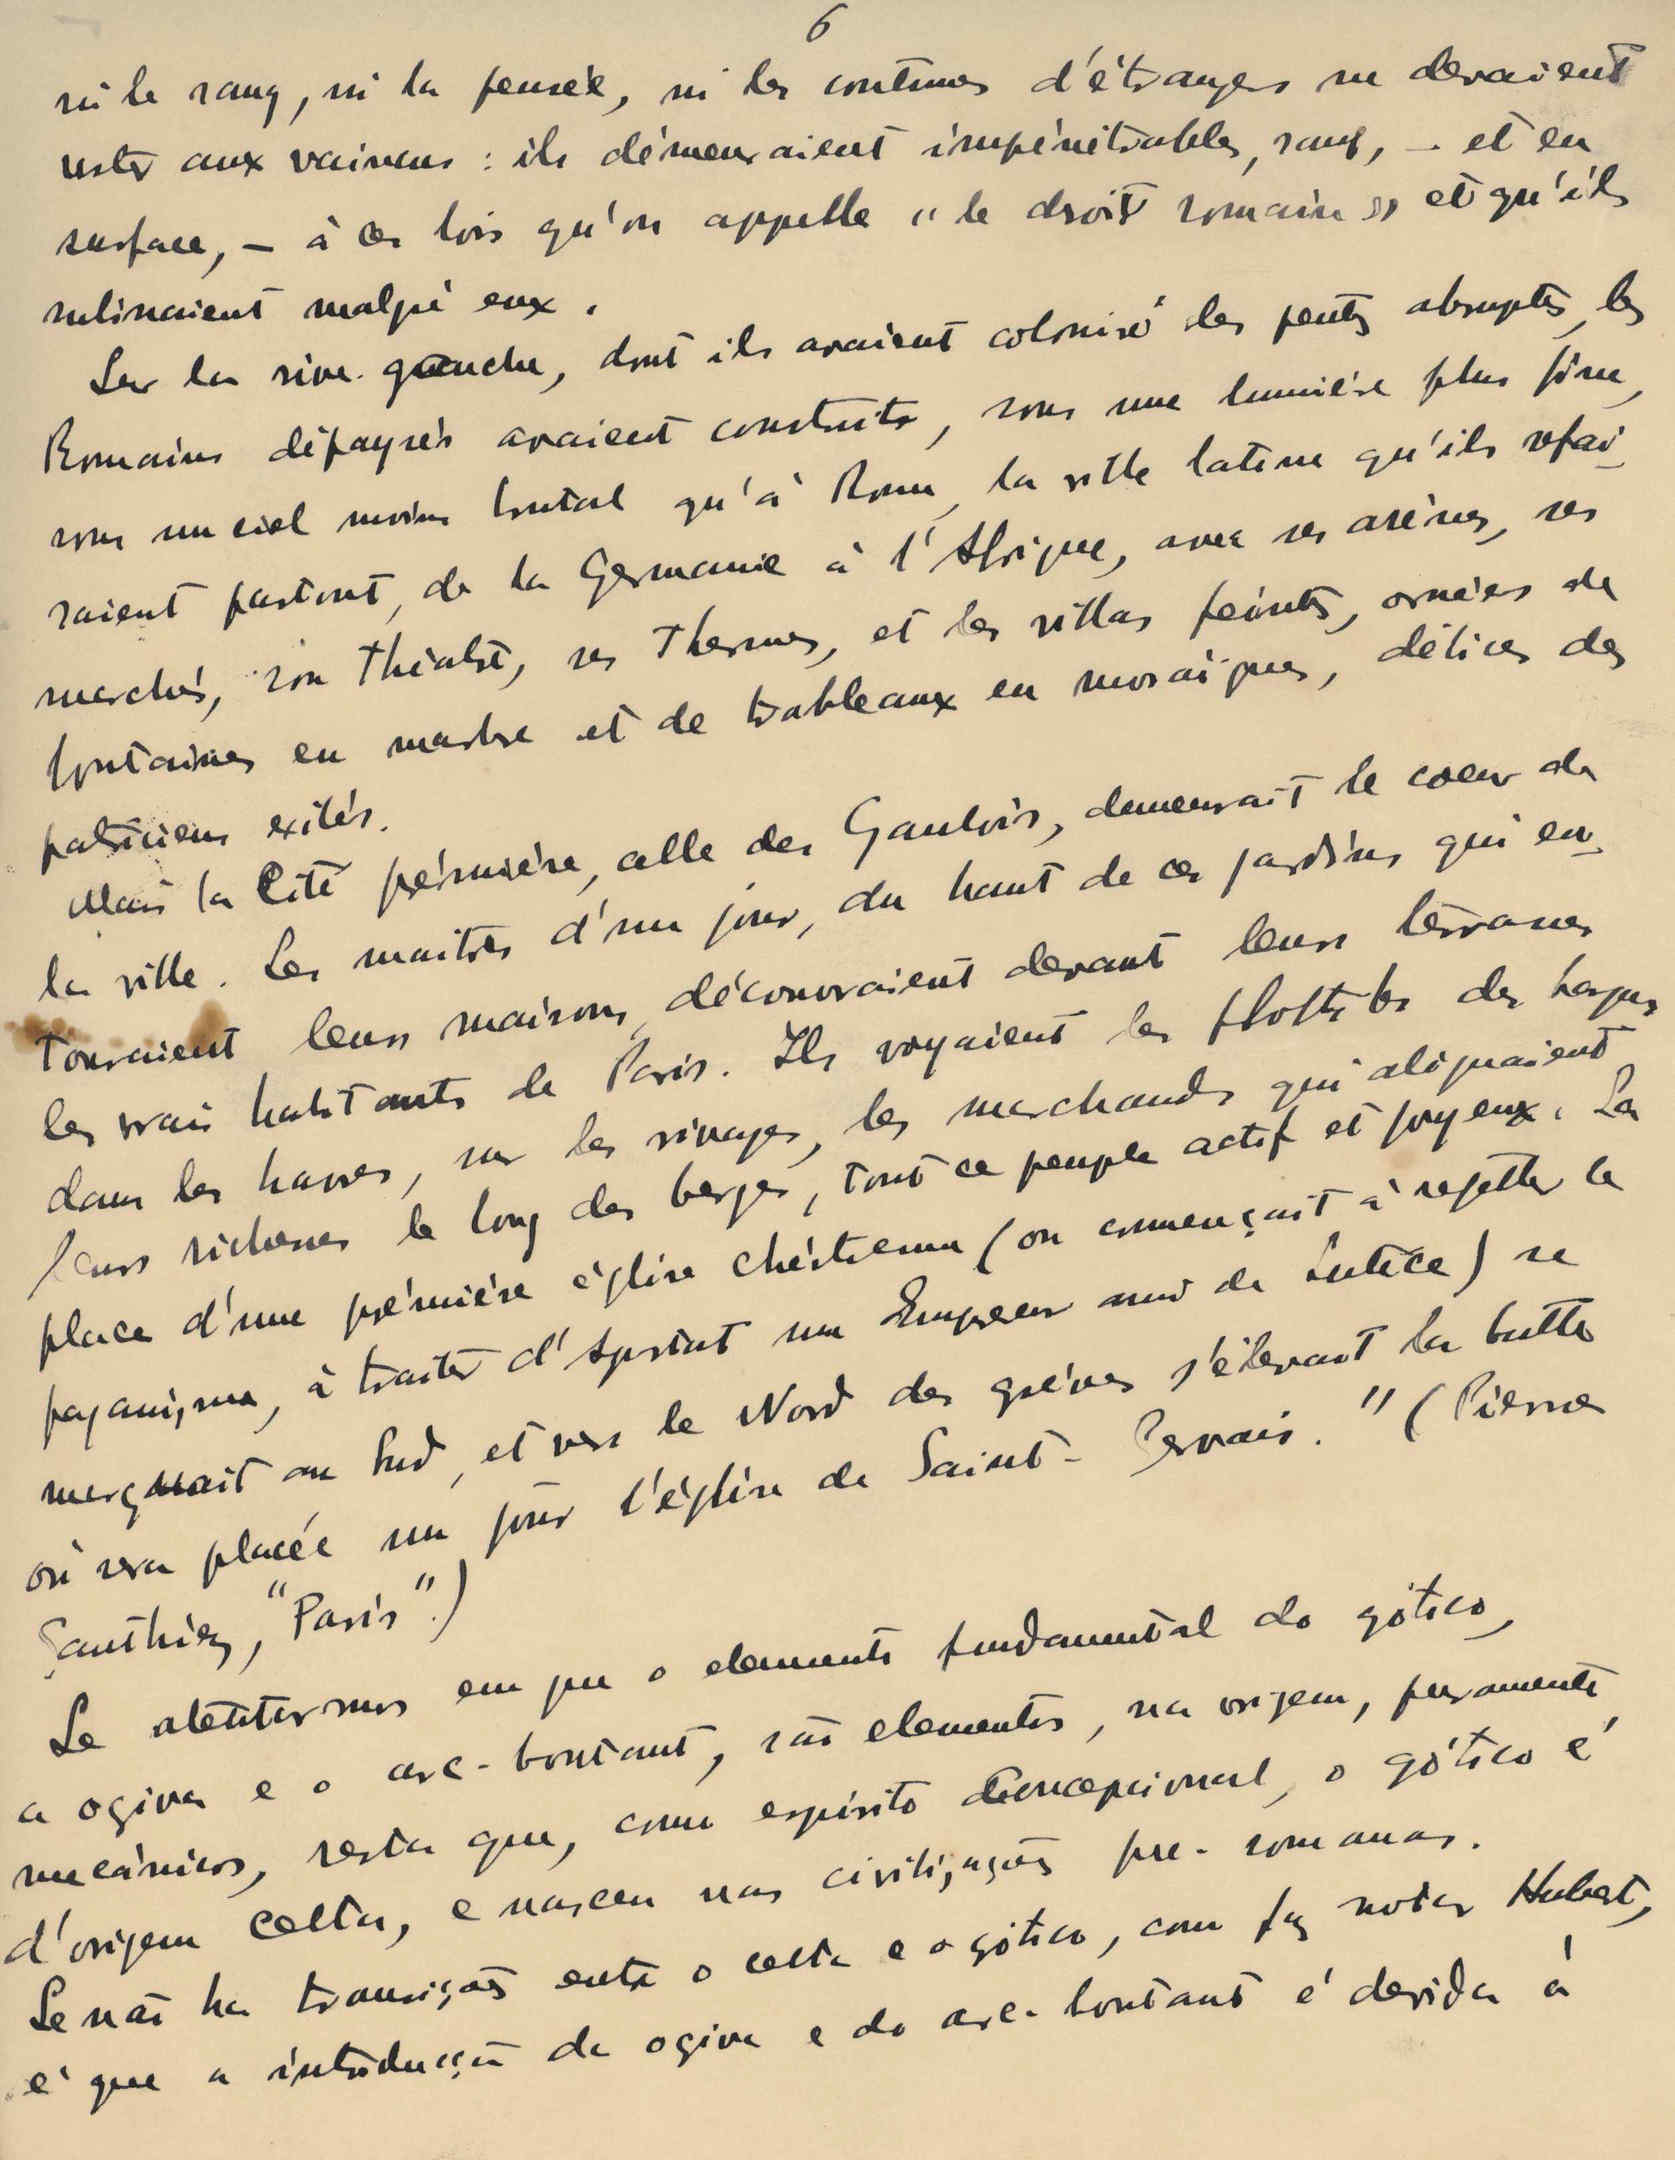 6
ni le sang, ni la pensée, ni les coutumes d'étrangers ne devaient
rester aux vaincus : ils démeuraient impénétrables, sauf, — et en
surface, — à ces lois qu'on appelle "le droit romain" et qu'ils
subissaient malgré eux.
Sur la rive gauche, dont ils avaient colonisé les pentes abruptes, les
Romains dépaysés avaient construits, sous une lumière plus fine,
sous un ciel moins brutal qu'à Rome, la ville latine qu'ils refai-
saient partout, de la Germanie à l'Afrique, avec ses arènes, ses
marchés, son théatre, ses Thermes, et les villas peintes, ornées de
fontaines en marbre et de trableaux en mosaïques, délices des
patriciens exilés.
Mais la Cité prémière, celle des Gaulois, demeurait le coeur de
la ville. Les maitres d'un jour, du haut de ces jardins qui en-
touraient leurs maisons, découvraient devant leurs terrasses
les vrais habitants de Paris. Ils voyaient les flottes des barques
dans les havres, sur les rivages, les marchands qui alignaient
leurs richesses le long des berges, tout ce peuple actif et joyeux. La
place d'une prémière église chrétienne (on commençait à rejetter le
paganisme, à traiter d'Apostat un Empereur ami de Lutéce) se
marquait au Sud, et vers le Nord des grèves s'élevait la butte
où sera placée un jour l'église de Saint-Gervais." (Pierre
Gauthiez, "Paris".)
Se atentarmos em que o elemento fundamental do gótico,
a ogiva e o arc-boutant, são elementos, na origem, puramente
mecánicos, resta que, como espirito concepcional, o gótico é
d'origem celta, e nasceu nas civilizações pre-romanas.
Se não ha transição entre o celta e o gótico, com faz notar Hubert,
é que a introducção da ogiva e do arc-boutant é devida á